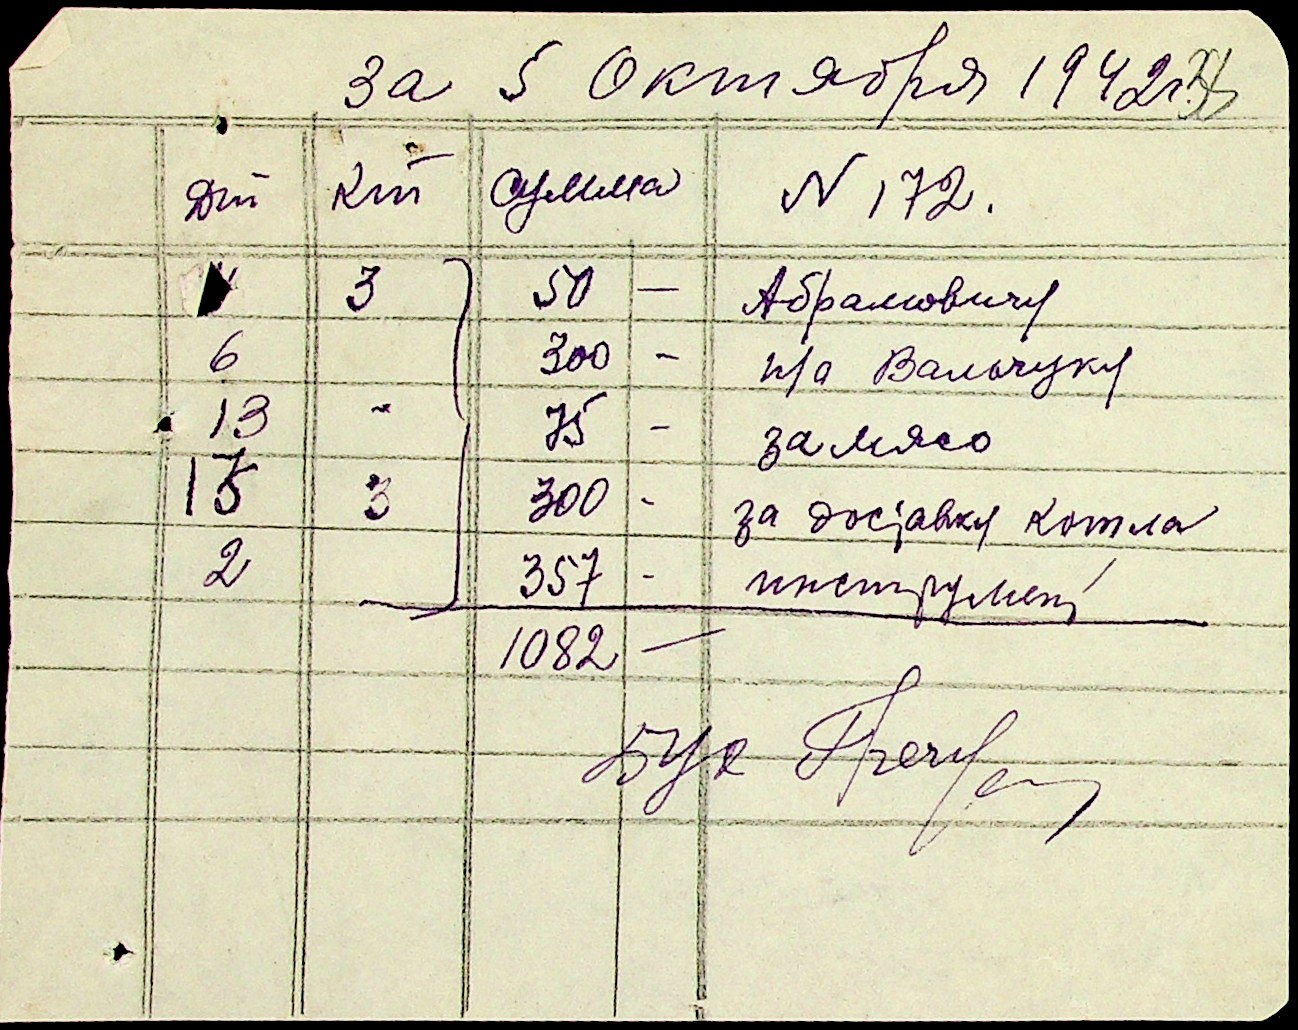 за 5 Октября 1942г.
Дт Кт сумма N 172.
3 50 — Абрамовичу
6 300 - п/о Вальчуку
13 " 75 - за мясо
15 3 300 - за доставку котла
2 357 - инструмент
1082 —
Бух